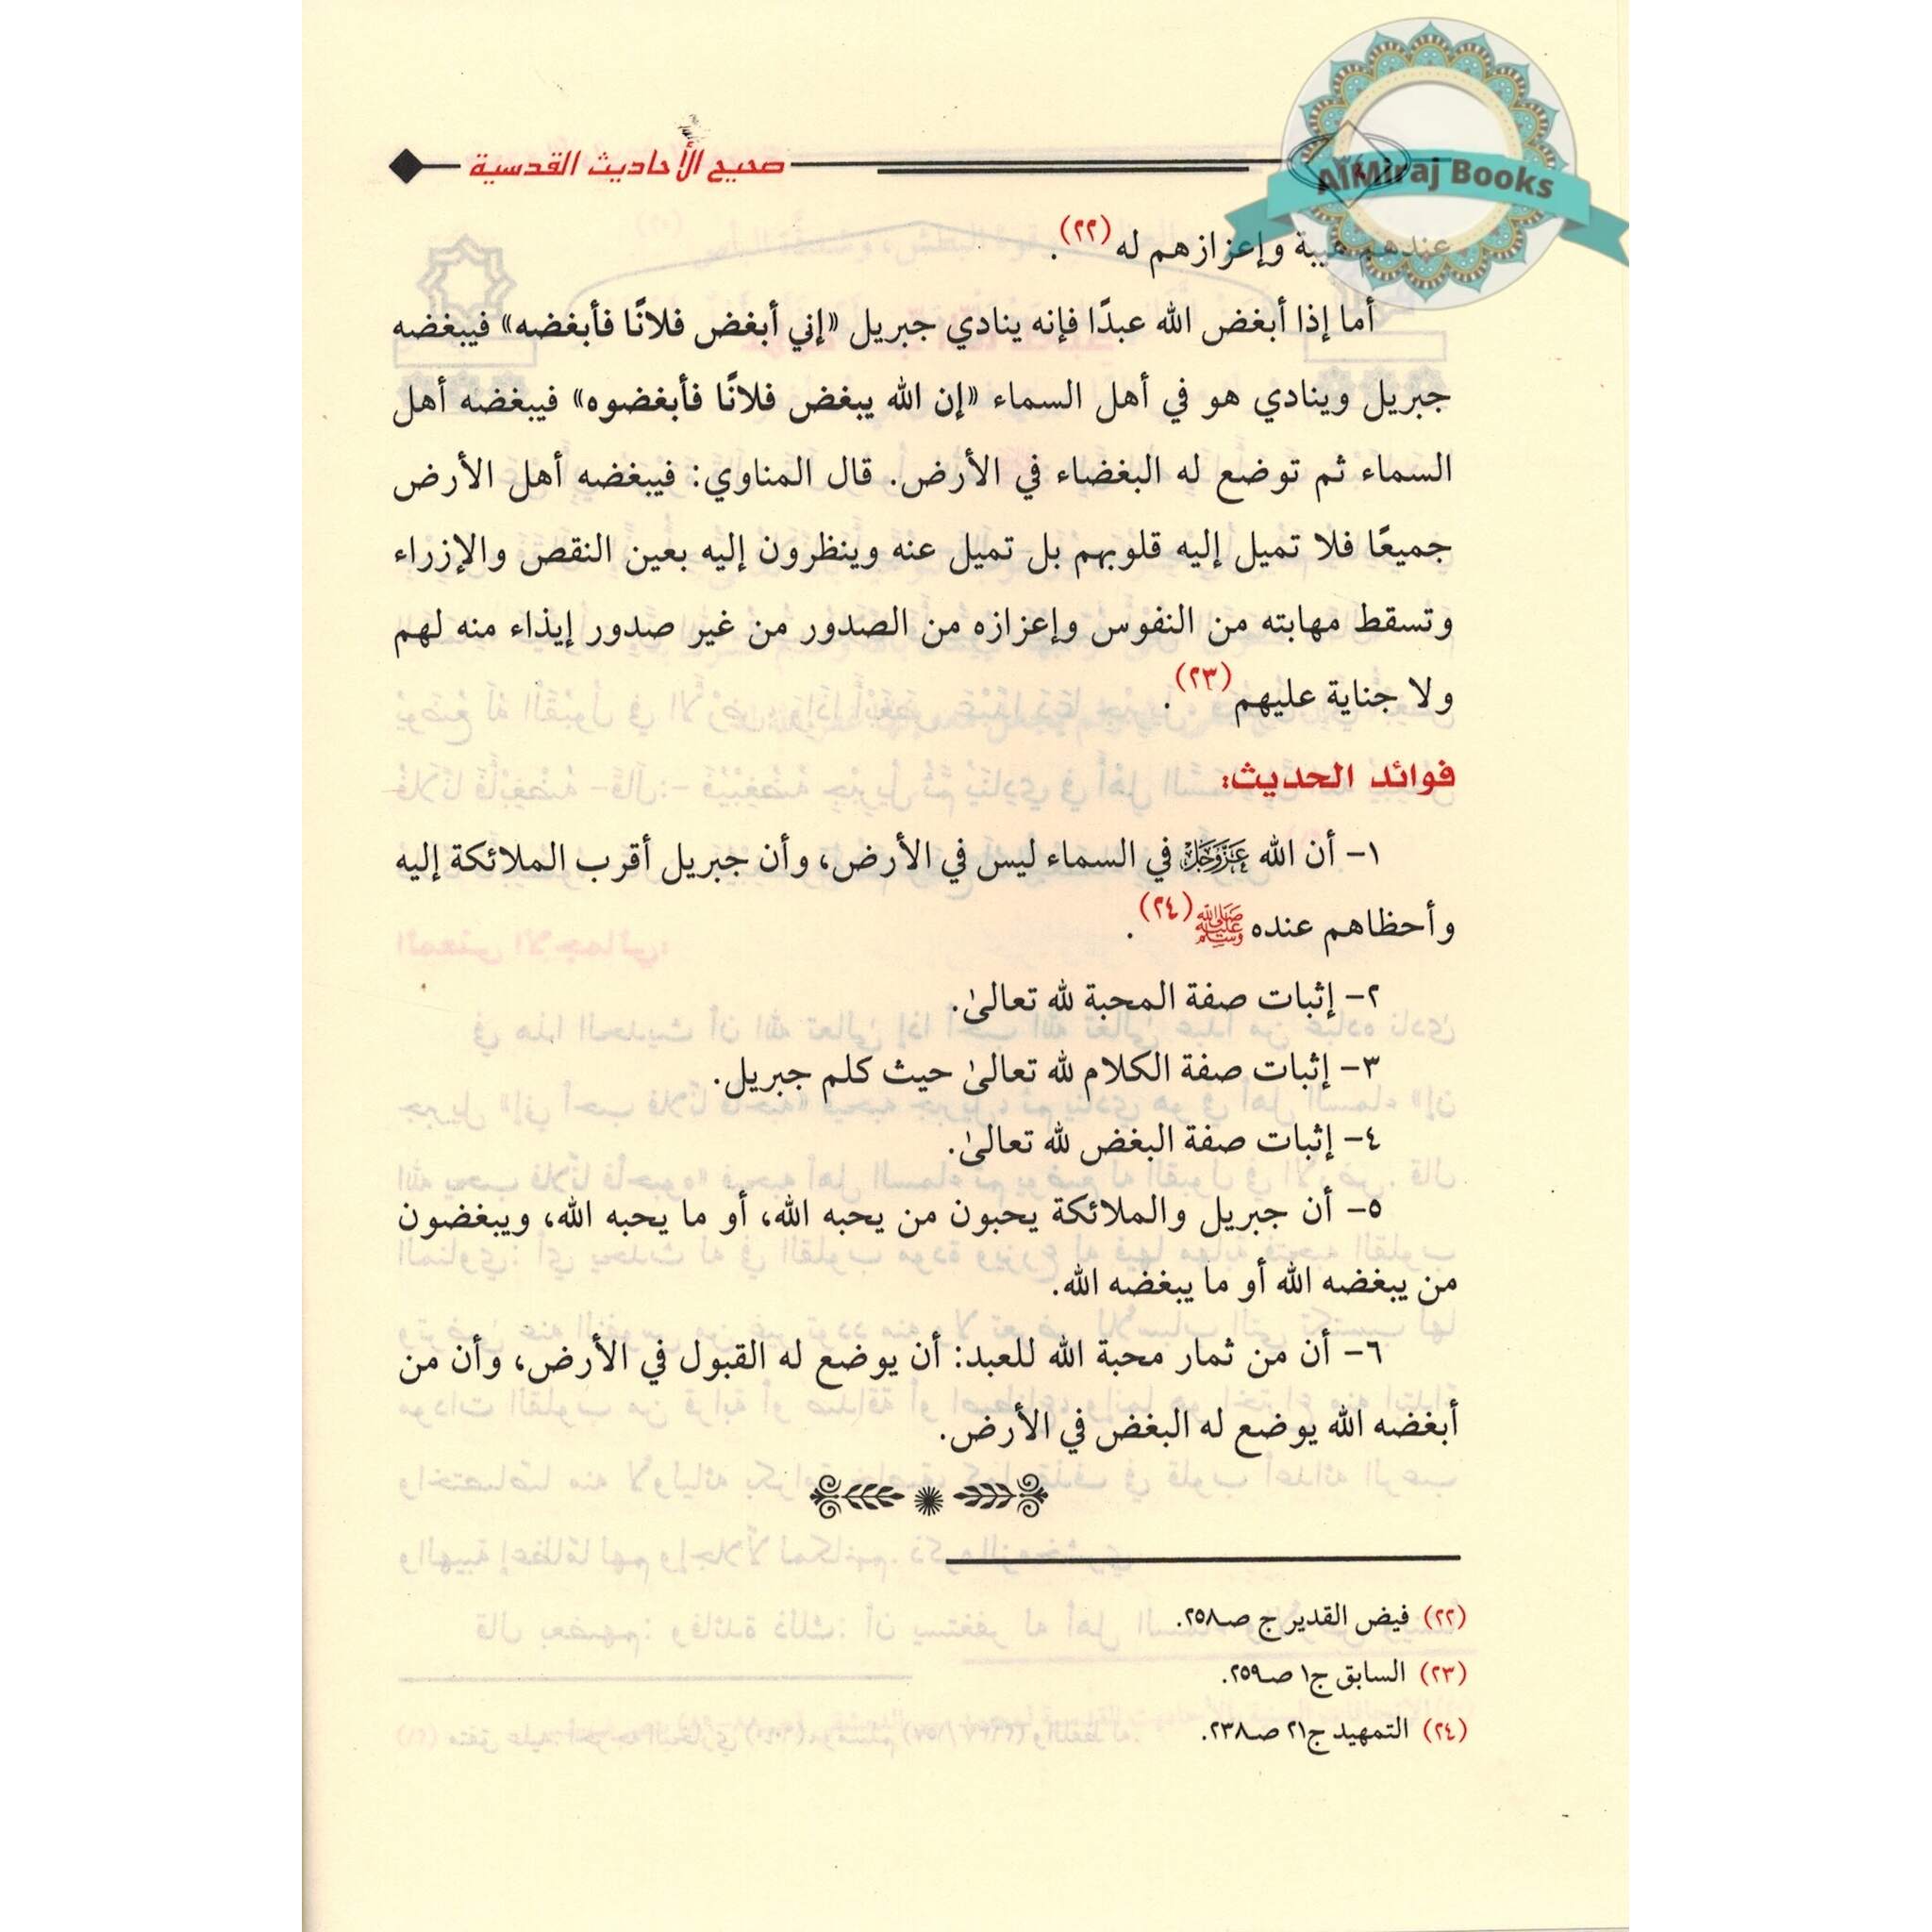 صحيح الأحاديث القدسية
AlMiraj Books
عندهم هيبة وإعزازهم له (٢٢).
أما إذا أبغض الله عبدًا فإنه ينادي جبريل «إني أبغض فلانًا فأبغضه» فيبغضه
جبريل وينادي هو في أهل السماء «إن الله يبغض فلانًا فأبغضوه» فيبغضه أهل
السماء ثم توضع له البغضاء في الأرض. قال المناوي: فيبغضه أهل الأرض
جميعًا فلا تميل إليه قلوبهم بل تميل عنه وينظرون إليه بعين النقص والإزراء
وتسقط مهابته من النفوس وإعزازه من الصدور من غير صدور إيذاء منه لهم
ولا جناية عليهم (٢٣).
فوائد الحديث:
١- أن الله عَزَّوَجَلَّ في السماء ليس في الأرض، وأن جبريل أقرب الملائكة إليه
وأحظاهم عنده ﷺ (٢٤).
٢- إثبات صفة المحبة لله تعالىٰ.
٣- إثبات صفة الكلام لله تعالىٰ حيث كلم جبريل.
٤- إثبات صفة البغض لله تعالىٰ.
٥- أن جبريل والملائكة يحبون من يحبه الله، أو ما يحبه الله، ويبغضون
من يبغضه الله أو ما يبغضه الله.
٦- أن من ثمار محبة الله للعبد: أن يوضع له القبول في الأرض، وأن من
أبغضه الله يوضع له البغض في الأرض.
(٢٢) فيض القدير ج صـ٢٥٨.
(٢٣) السابق ج١ صـ٢٥٩.
(٢٤) التمهيد ج٢١ صـ٢٣٨.